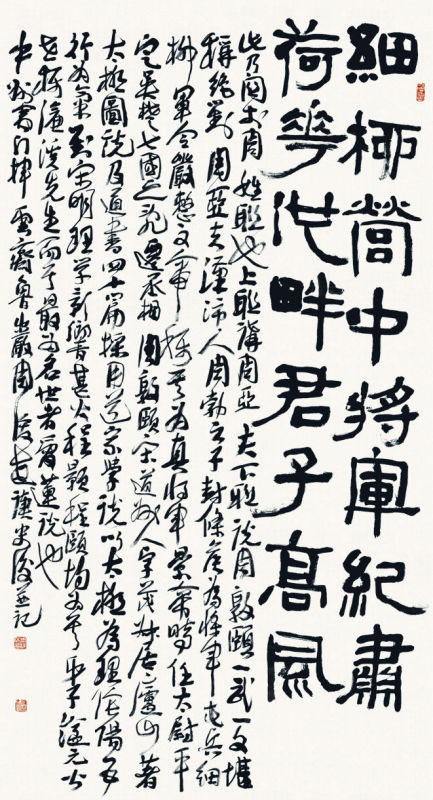 細柳營中將軍紀肅
荷花池畔君子高風
此乃關於周姓聯也上聯講周亞夫下聯說周敦頤一武一文堪
稱絕對周亞夫漢沛人周勃之子封條侯為將軍屯兵細
柳軍令嚴整文帝稱其為真將軍景帝時任太尉平
定吳楚七國之亂遷丞相周敦頤宋道州人字茂叔居廬山著
太極圖說及通書四十篇採用道家學說以太極為理陰陽五
行為氣對宋明理學影響甚大程顥程頤均為其弟子諡元公
世稱濂溪先生而予最為名世者愛蓮說也
中州書門雲齋周俊杰並記